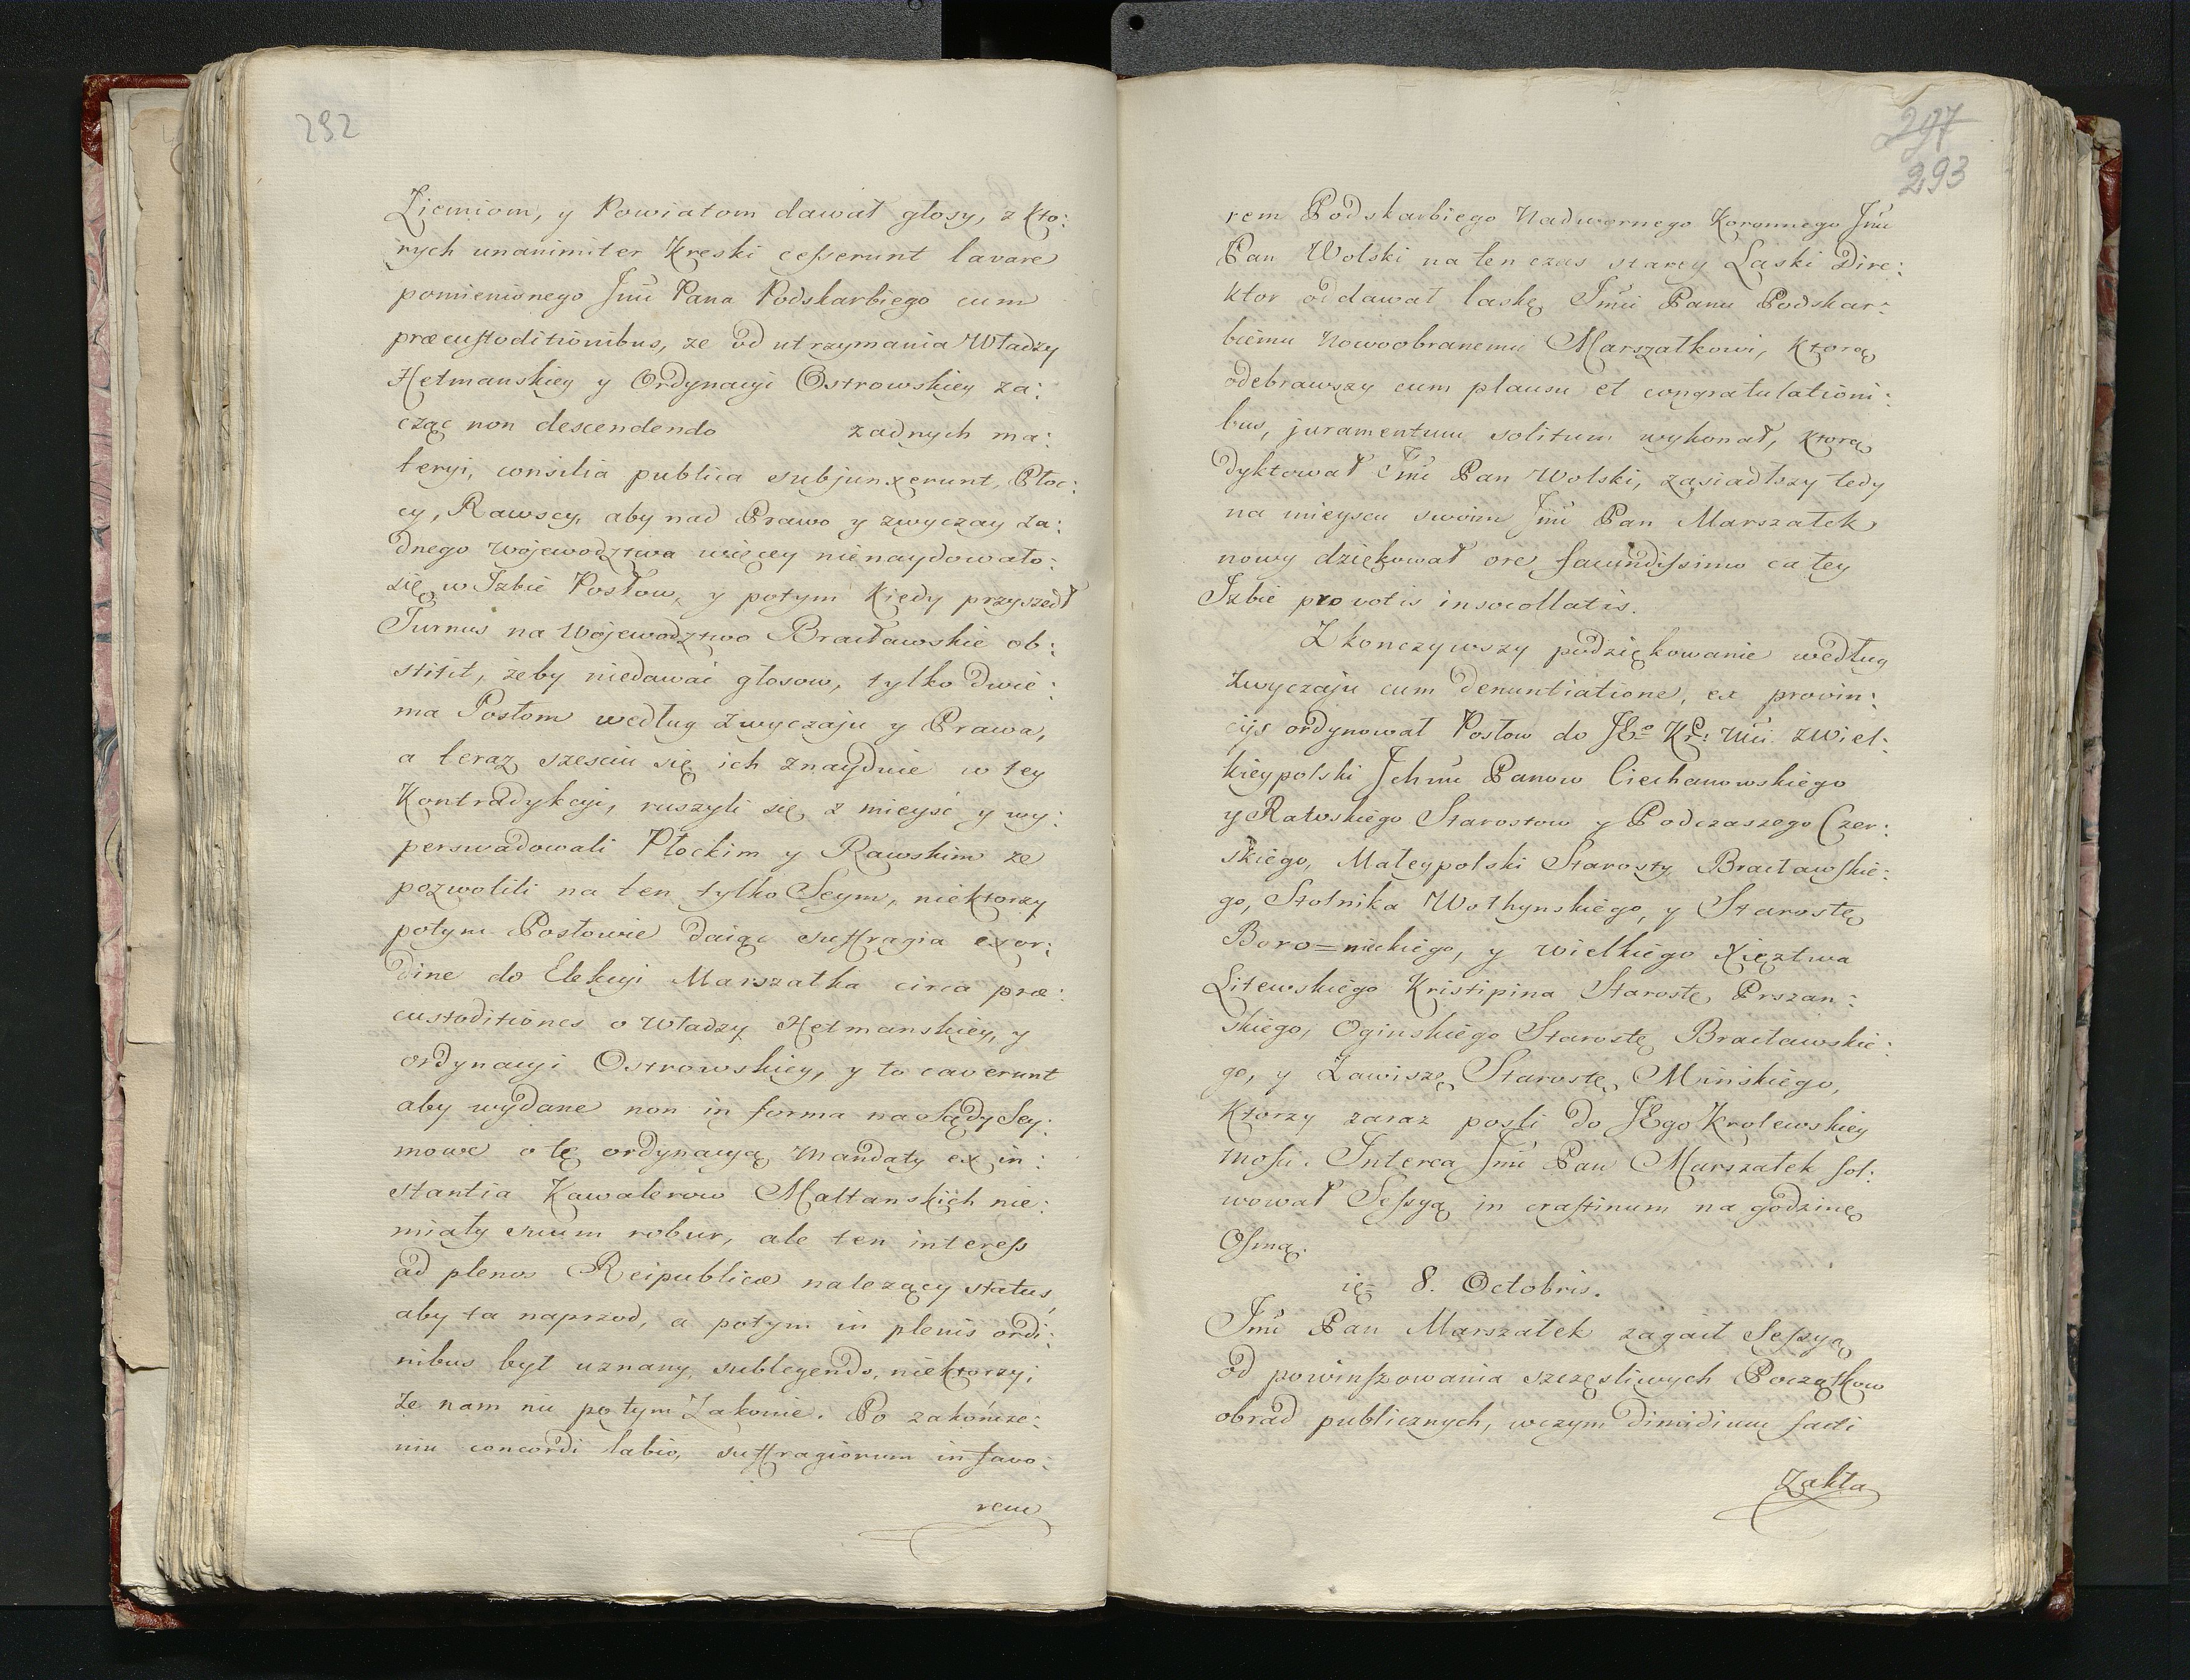 292
Ziemiom, y Powiatom dawał głosy, z kto:
rych unanimiter Kreski cesserunt lavare
pomienionego Jmći Pana Podskarbiego cum
præcustoditionibus, ze od utrzymania Władzy
Hetmanskiey y Ordynacyi Ostrowskiey za:
cząc non descendendo zadnych ma:
teryi, consilia publica subjunxerunt, Płoc:
cy, Rawscy, aby nad Prawo y zwyczay ża:
dnego Wojewodztwa więcey nienaydowało:
się w Izbie Posłow, y potym kiedy przyszedł
Turnus na Wojewodztwo Bracławskie ob:
stitit, żeby niedawać głosow, tylko dwie:
ma Posłom według Zwyczaju y Prawa,
a teraz szesciu się ich znayduie w tey
Kontradykcyi, ruszyli się z mieysć y wy:
perswadowali Płockim y Rawskim ze
pozwolili na ten tylko Seym, niektorzy
potym Posłowie daiąc suffragia ex or:
dine do Elekcyi Marszałka circa præ:
custoditiones o Władzy Hetmanskiey, y
ordynacyi Ostrowskiey, y to caverunt
aby wydane non in forma na Sądy Sey:
mowe o tę ordynacyą Mandaty ex in:
stantia Kawalerow Maltanskich nie:
miały suum robur, ale ten interess
ad plenos Reipublicæ nalezący status,
aby ta naprzod, a potym in plenis ordi:
nibus był uznany, sublegendo, niektorzy;
Ze nam nic po tym Zakonie. Po zakończe:
niu concordi labio, suffragiorum in favo:
rem
297
293
rem Podskarbiego Nadwornego Koronnego Jmći
Pan Wolski na ten czas starey Laski Dire:
ktor oddawał laskę Jmći Panu Podskar:
biemu Nowoobranemu Marszałkowi, ktorą
odebrawszy cum plausu et congratulationi:
bus, juramentum solitum wykonał, ktorą
dyktował Jmć Pan Wolski, zasiadłszy tedy
na mieyscu swoim Jmć Pan Marszałek
nowy dziękował ore facundissimo całey
Izbie pro votis in se collatis.
Zkonczywszy podziękowanie według
Zwyczaju cum denuntiatione, ex provin:
cijs ordynował Posłow do JEo Kr: Mći z Wiel:
kieypolski Jchmć Panow Ciechanowskiego
y Rawskiego Starostow y Podczaszego Czer:
skiego, Małeypolski Starosty Bracławskie:
go, Stolnika Wołhynskiego, y Starostę
Boro=nickiego, y Wielkiego Xięztwa
Litewskiego Kristipina Starostę Prszan:
skiego, Oginskiego Starostę Bracławskie:
go, y Zawiszę Starostę Mińskiego,
Ktorzy zaraz poszli do JEgo Krolewskiey
Mości. Interea Jmć Pan Marszałek sol:
wował Sessyą in crastinum na godzinę
Osmą.
ię= 8. Octobris.
Jmć Pan Marszałek zagaił Sessyą
od powinszowania szczęsliwych Początkow
obrad publicznych, w czym dimidium facti
Zakła